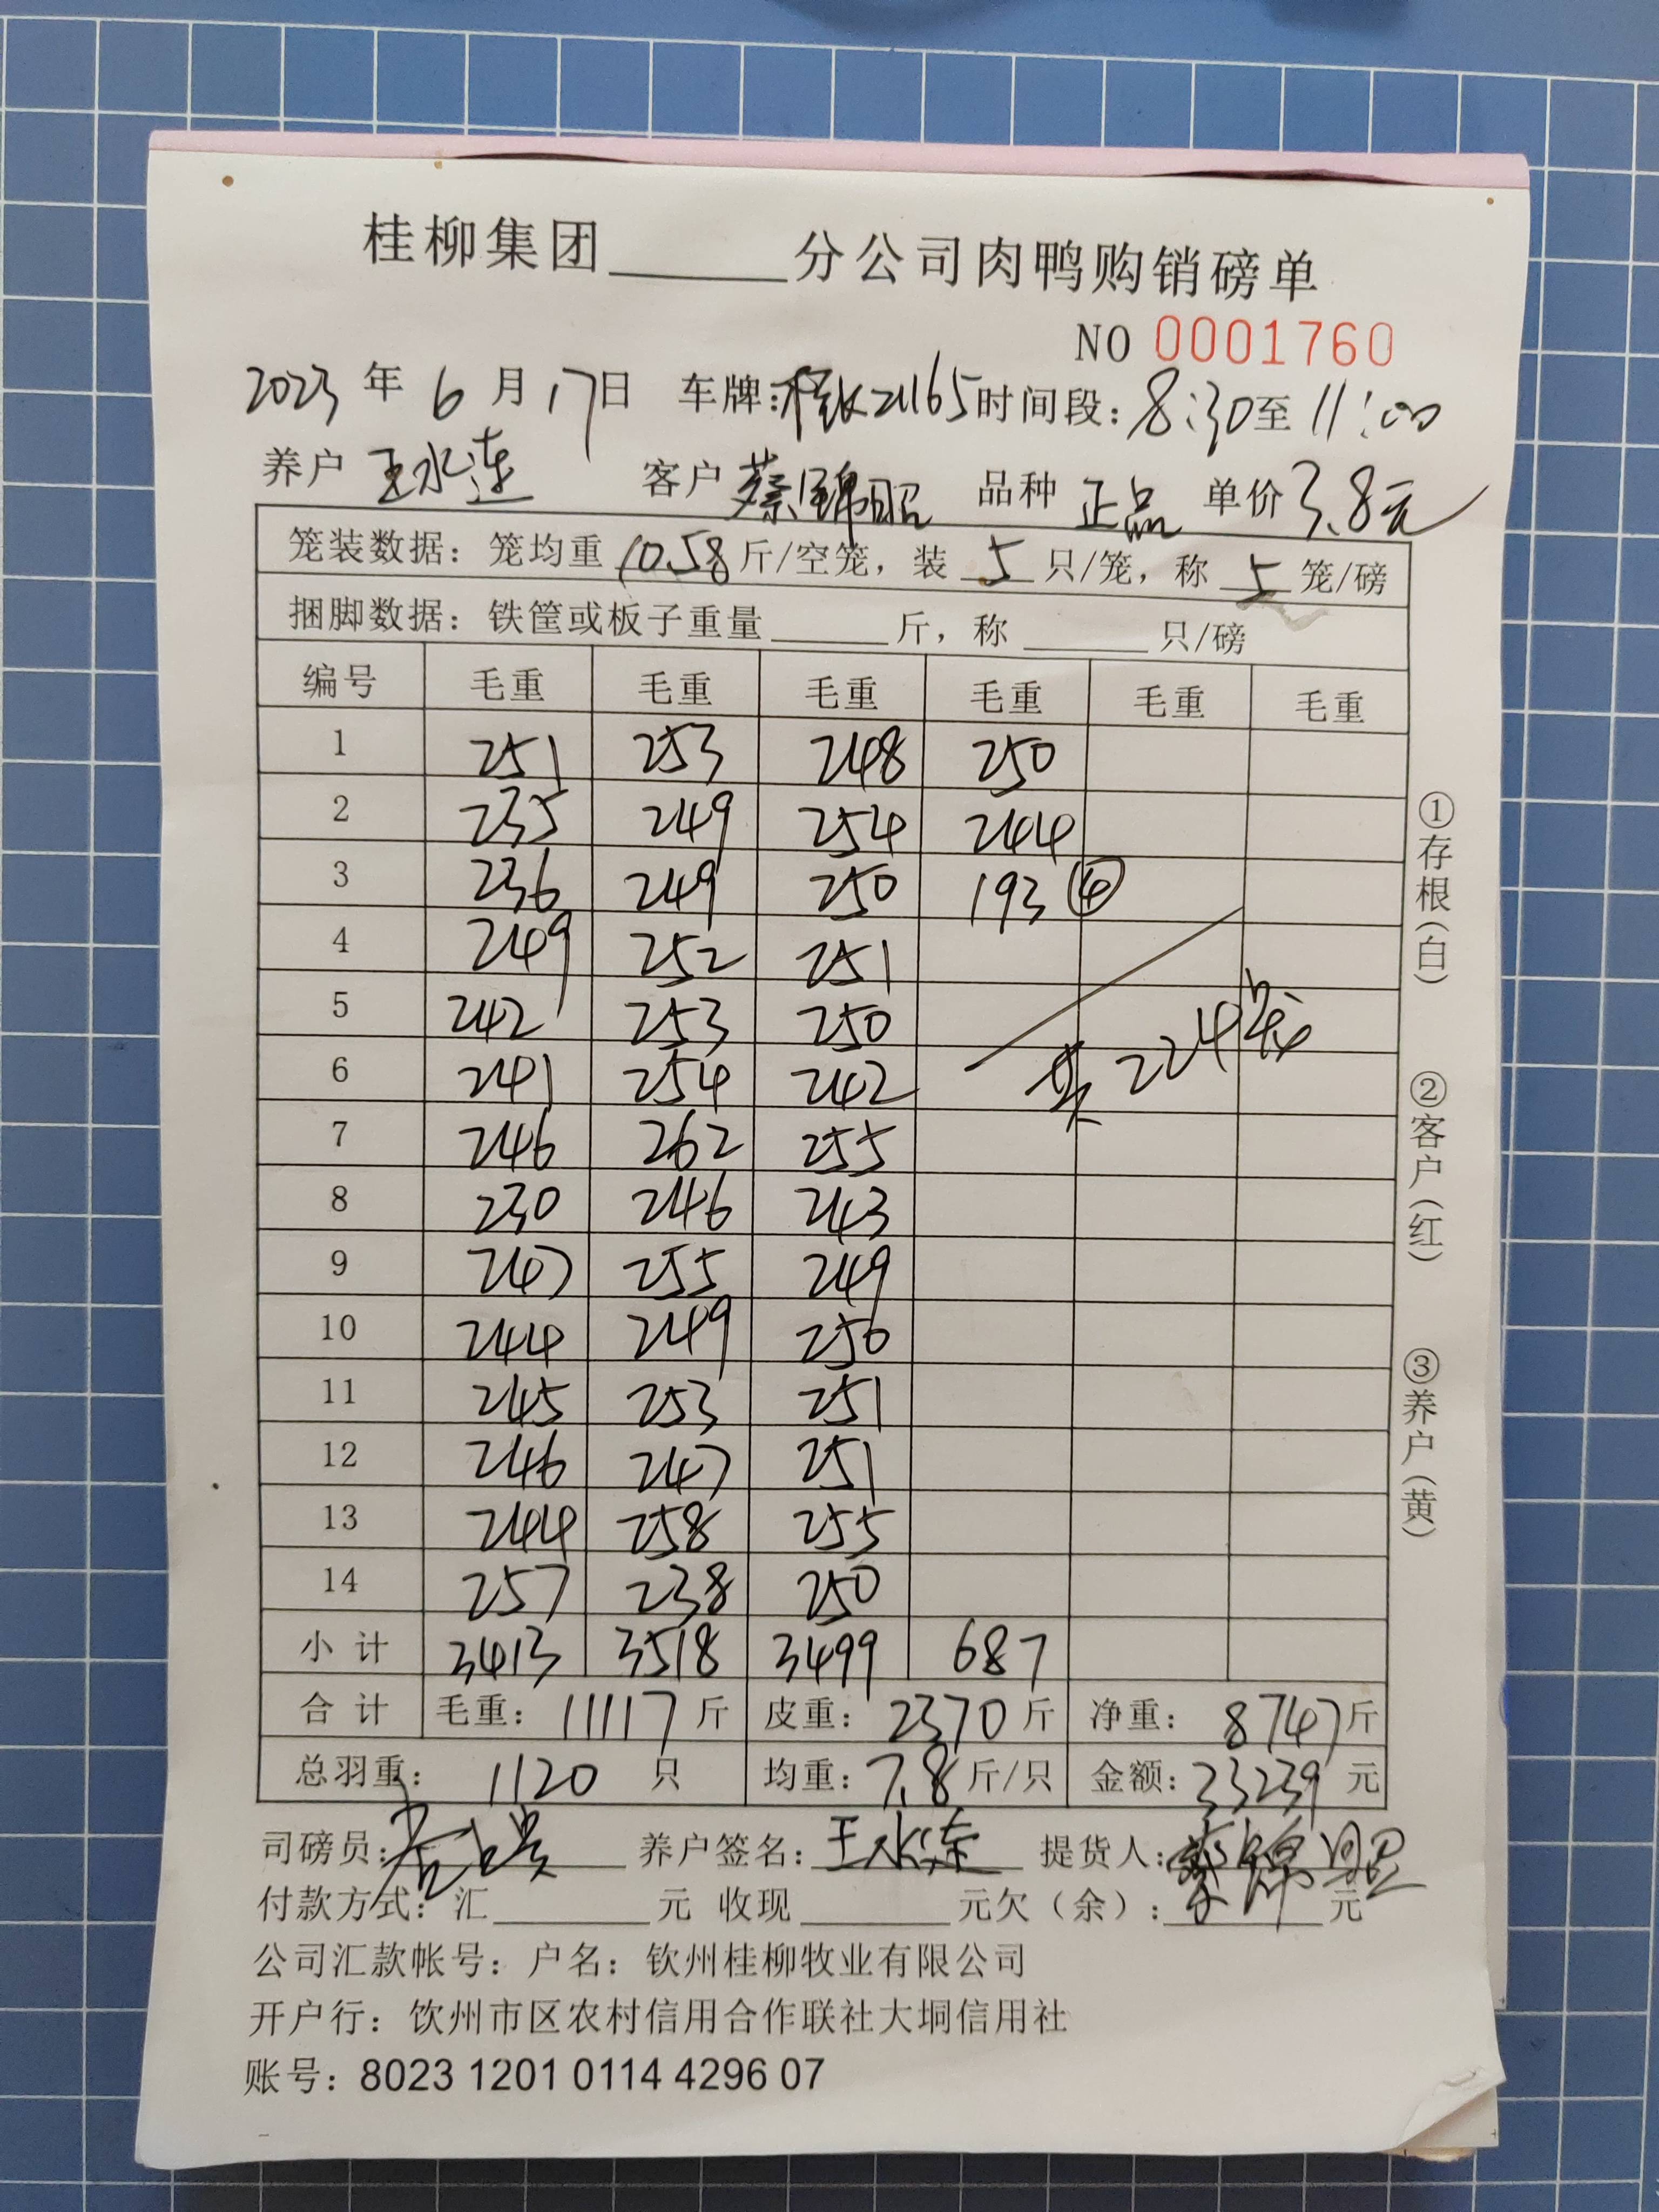 桂柳集团______分公司肉鸭购销磅单
NO 0001760
2023年6月17日 车牌: 21165 时间段: 8:30至11:00
养户 王水连 客户 蔡锦昭 品种 正品 单价 3.8元
笼装数据: 笼均重 10.58 斤/空笼, 装 5 只/笼, 称 5 笼/磅
捆脚数据: 铁筐或板子重量______斤, 称______只/磅
编号 毛重 毛重 毛重 毛重 毛重 毛重
1 251 253 248 250
2 235 249 254 244
3 236 249 250 193 ④
4 249 252 251
5 242 253 250
6 241 254 242 共224笼
7 246 262 255
8 230 246 243
9 247 255 249
10 244 249 250
11 245 253 251
12 246 247 251
13 244 258 255
14 257 238 250
小计 3413 3518 3499 687
合计 毛重: 11117斤 皮重: 2370斤 净重: 8747斤
总羽重: 1120 只 均重: 7.8斤/只 金额: 33239 元
司磅员: 养户签名: 王水连 提货人: 蔡锦昭
付款方式: 汇______元 收现______元欠(余):______元
公司汇款帐号: 户名: 钦州桂柳牧业有限公司
开户行: 饮州市区农村信用合作联社大垌信用社
账号: 8023 1201 0114 4296 07
①存根(白)
②客户(红)
③养户(黄)